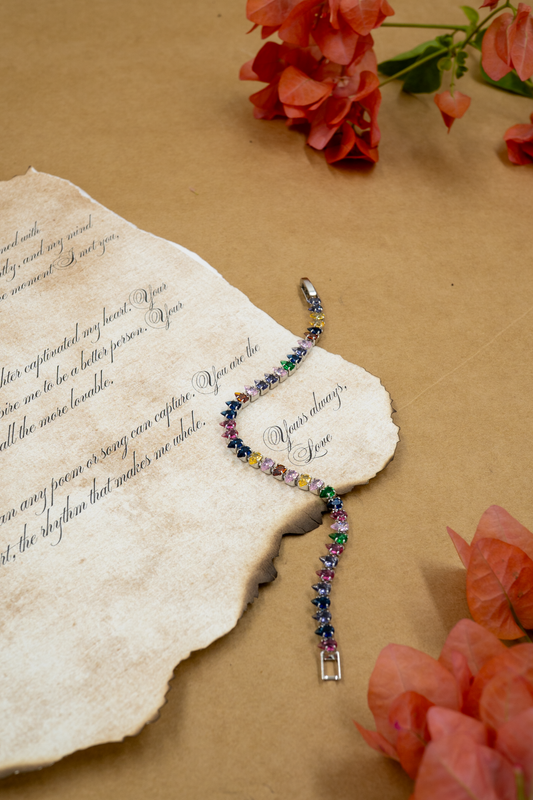 ned with
tly, and my mind
e moment I met you,
hter captivated my heart. Your
pire me to be a better person. Your
all the more lovable.
an any poem or song can capture. You are the
rt, the rhythm that makes me whole.
Yours always,
Love